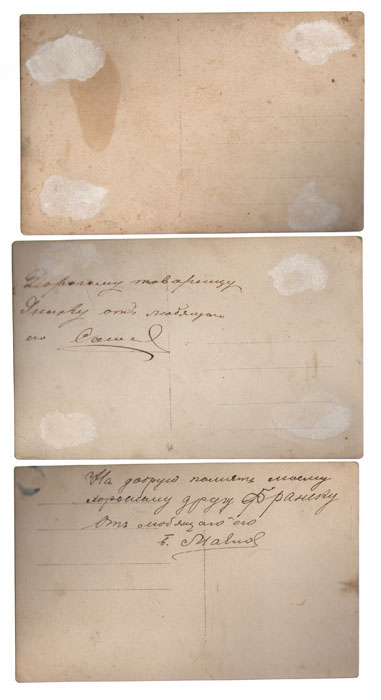 Дорогому товарищу
отъ любящаго
его Саши
На добрую память моему
хорошему другу
Отъ любящаго его
Б.